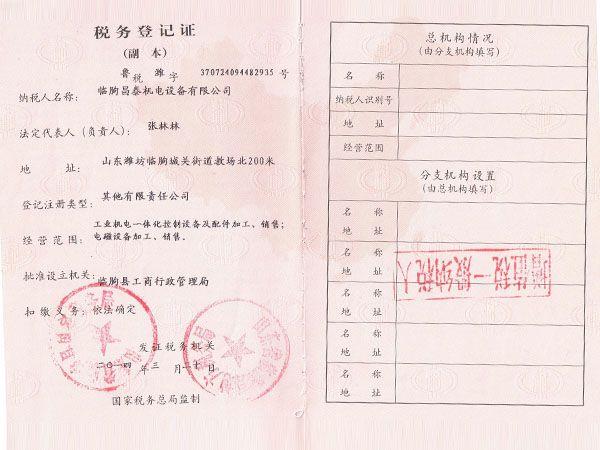 税务登记证
(副 本)
鲁税 潍字 370724094482935 号
纳税人名称: 临朐昌泰机电设备有限公司
法定代表人(负责人): 张林林
地 址: 山东潍坊临朐城关街道教场北200米
登记注册类型: 其他有限责任公司
经营范围: 工业机电一体化控制设备及配件加工、销售;
电磁设备加工、销售。
批准设立机关: 临朐县工商行政管理局
扣缴义务: 依法确定
发证税务机关
二〇一四 年 三 月 二十 日
国家税务总局监制
总机构情况
(由分支机构填写)
名 称
纳税人识别号
地 址
经营范围
分支机构设置
(由总机构填写)
名 称
地 址
名 称
地 址
增值税一般纳税人
名 称
地 址
名 称
地 址
名 称
地 址